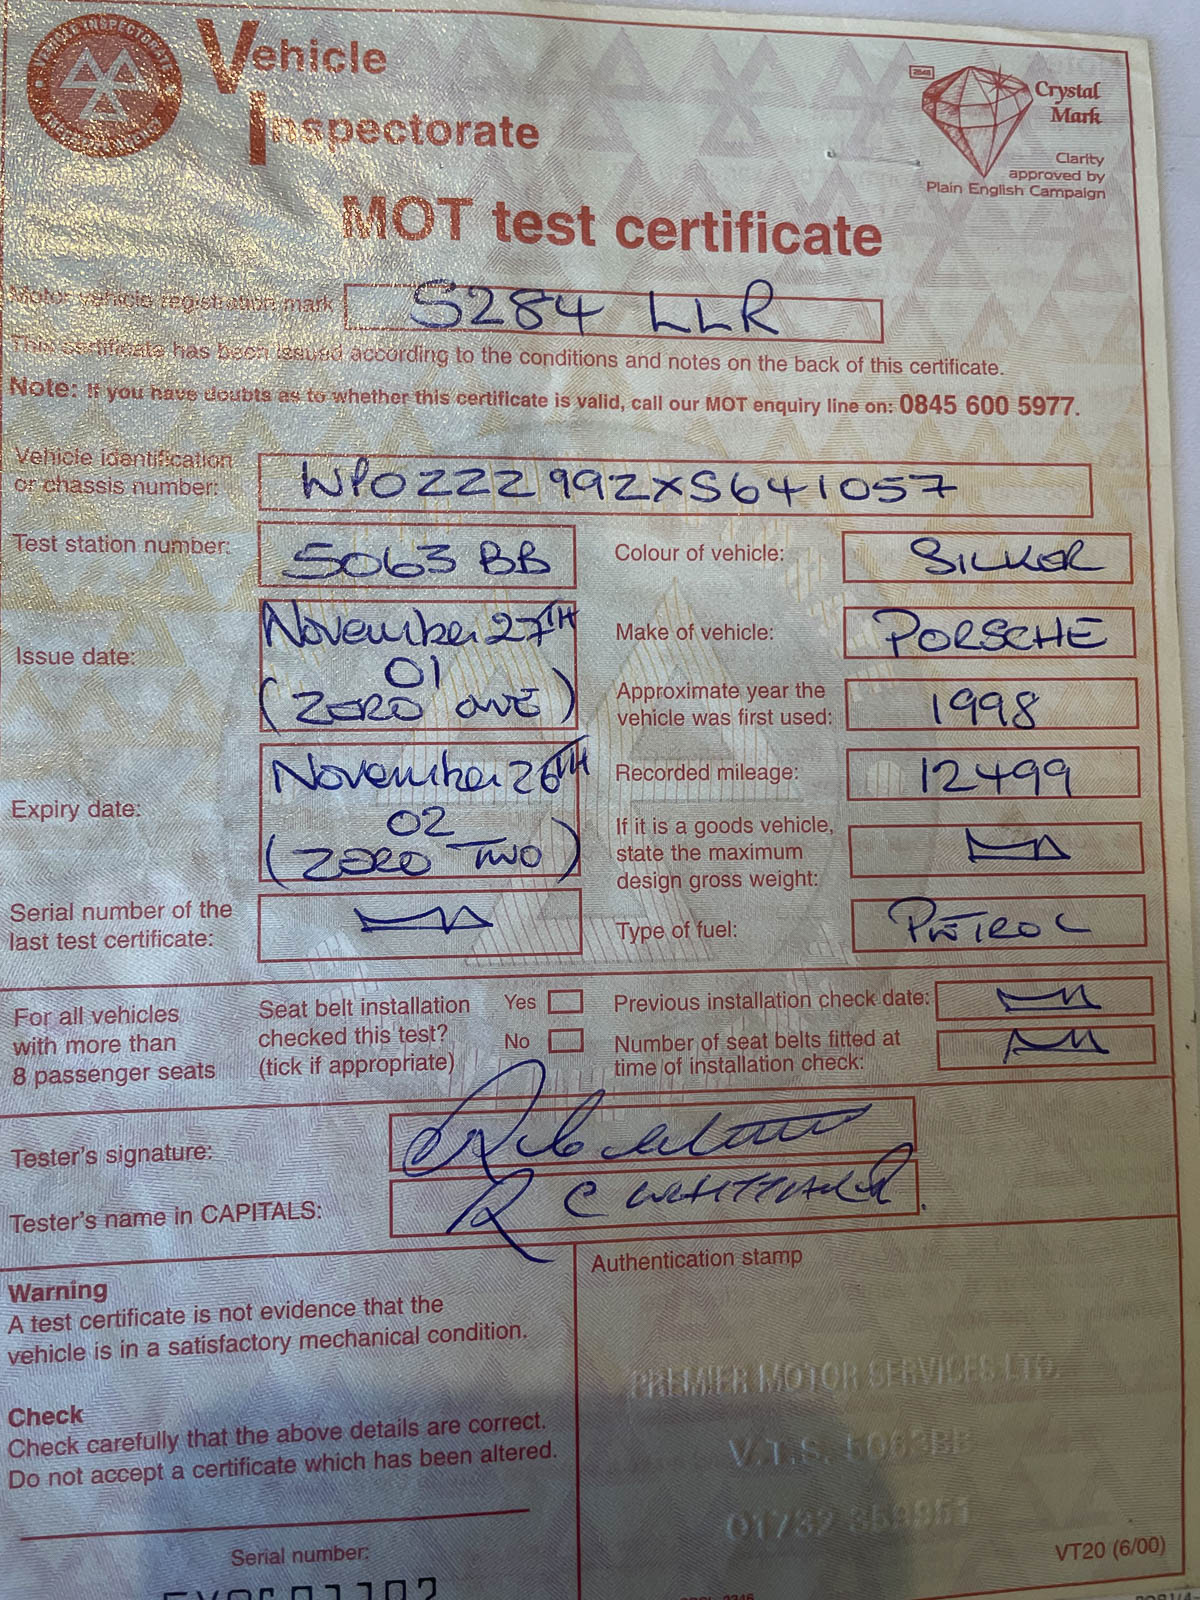 VEHICLE INSPECTORATE
Vehicle
Inspectorate
2848
Crystal
Mark
Clarity
approved by
Plain English Campaign
MOT test certificate
Motor vehicle registration mark S284 LLR
This certificate has been issued according to the conditions and notes on the back of this certificate.
Note: If you have doubts as to whether this certificate is valid, call our MOT enquiry line on: 0845 600 5977.
Vehicle identification
or chassis number: WP0ZZZ99ZXS641057
Test station number: 5063 BB
Colour of vehicle: SILVER
Issue date: November 27TH
01
(ZERO ONE)
Make of vehicle: PORSCHE
Approximate year the
vehicle was first used: 1998
Expiry date: November 26TH
02
(ZERO TWO)
Recorded mileage: 12499
If it is a goods vehicle,
state the maximum
design gross weight:
Serial number of the
last test certificate:
Type of fuel: PETROL
For all vehicles
with more than
8 passenger seats
Seat belt installation
checked this test?
(tick if appropriate)
Yes
No
Previous installation check date:
Number of seat belts fitted at
time of installation check:
Tester's signature:
Tester's name in CAPITALS: R C WHITTAKER
Warning
A test certificate is not evidence that the
vehicle is in a satisfactory mechanical condition.
Check
Check carefully that the above details are correct.
Do not accept a certificate which has been altered.
Serial number:
Authentication stamp
PREMIER MOTOR SERVICES LTD.
V.T.S. 5063BB
01732 359951
VT20 (6/00)